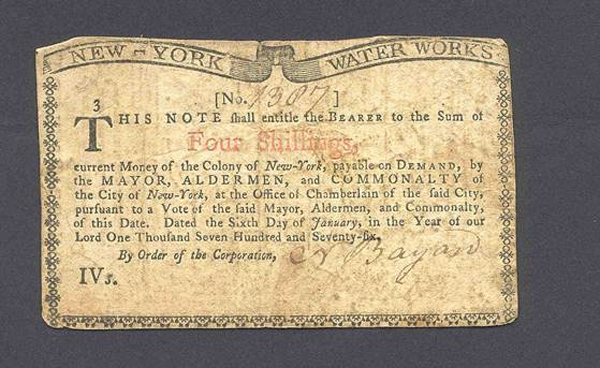 NEW-YORK WATER WORKS
[No. 1387]
3
THIS NOTE shall entitle the BEARER to the Sum of
Four Shillings,
current Money of the Colony of New-York, payable on DEMAND, by
the MAYOR, ALDERMEN, and COMMONALTY of
the City of New-York, at the Office of Chamberlain of the said City,
pursuant to a Vote of the said Mayor, Aldermen, and Commonalty,
of this Date. Dated the Sixth Day of January, in the Year of our
Lord One Thousand Seven Hundred and Seventy-six.
By Order of the Corporation, N Bayard
IVs.